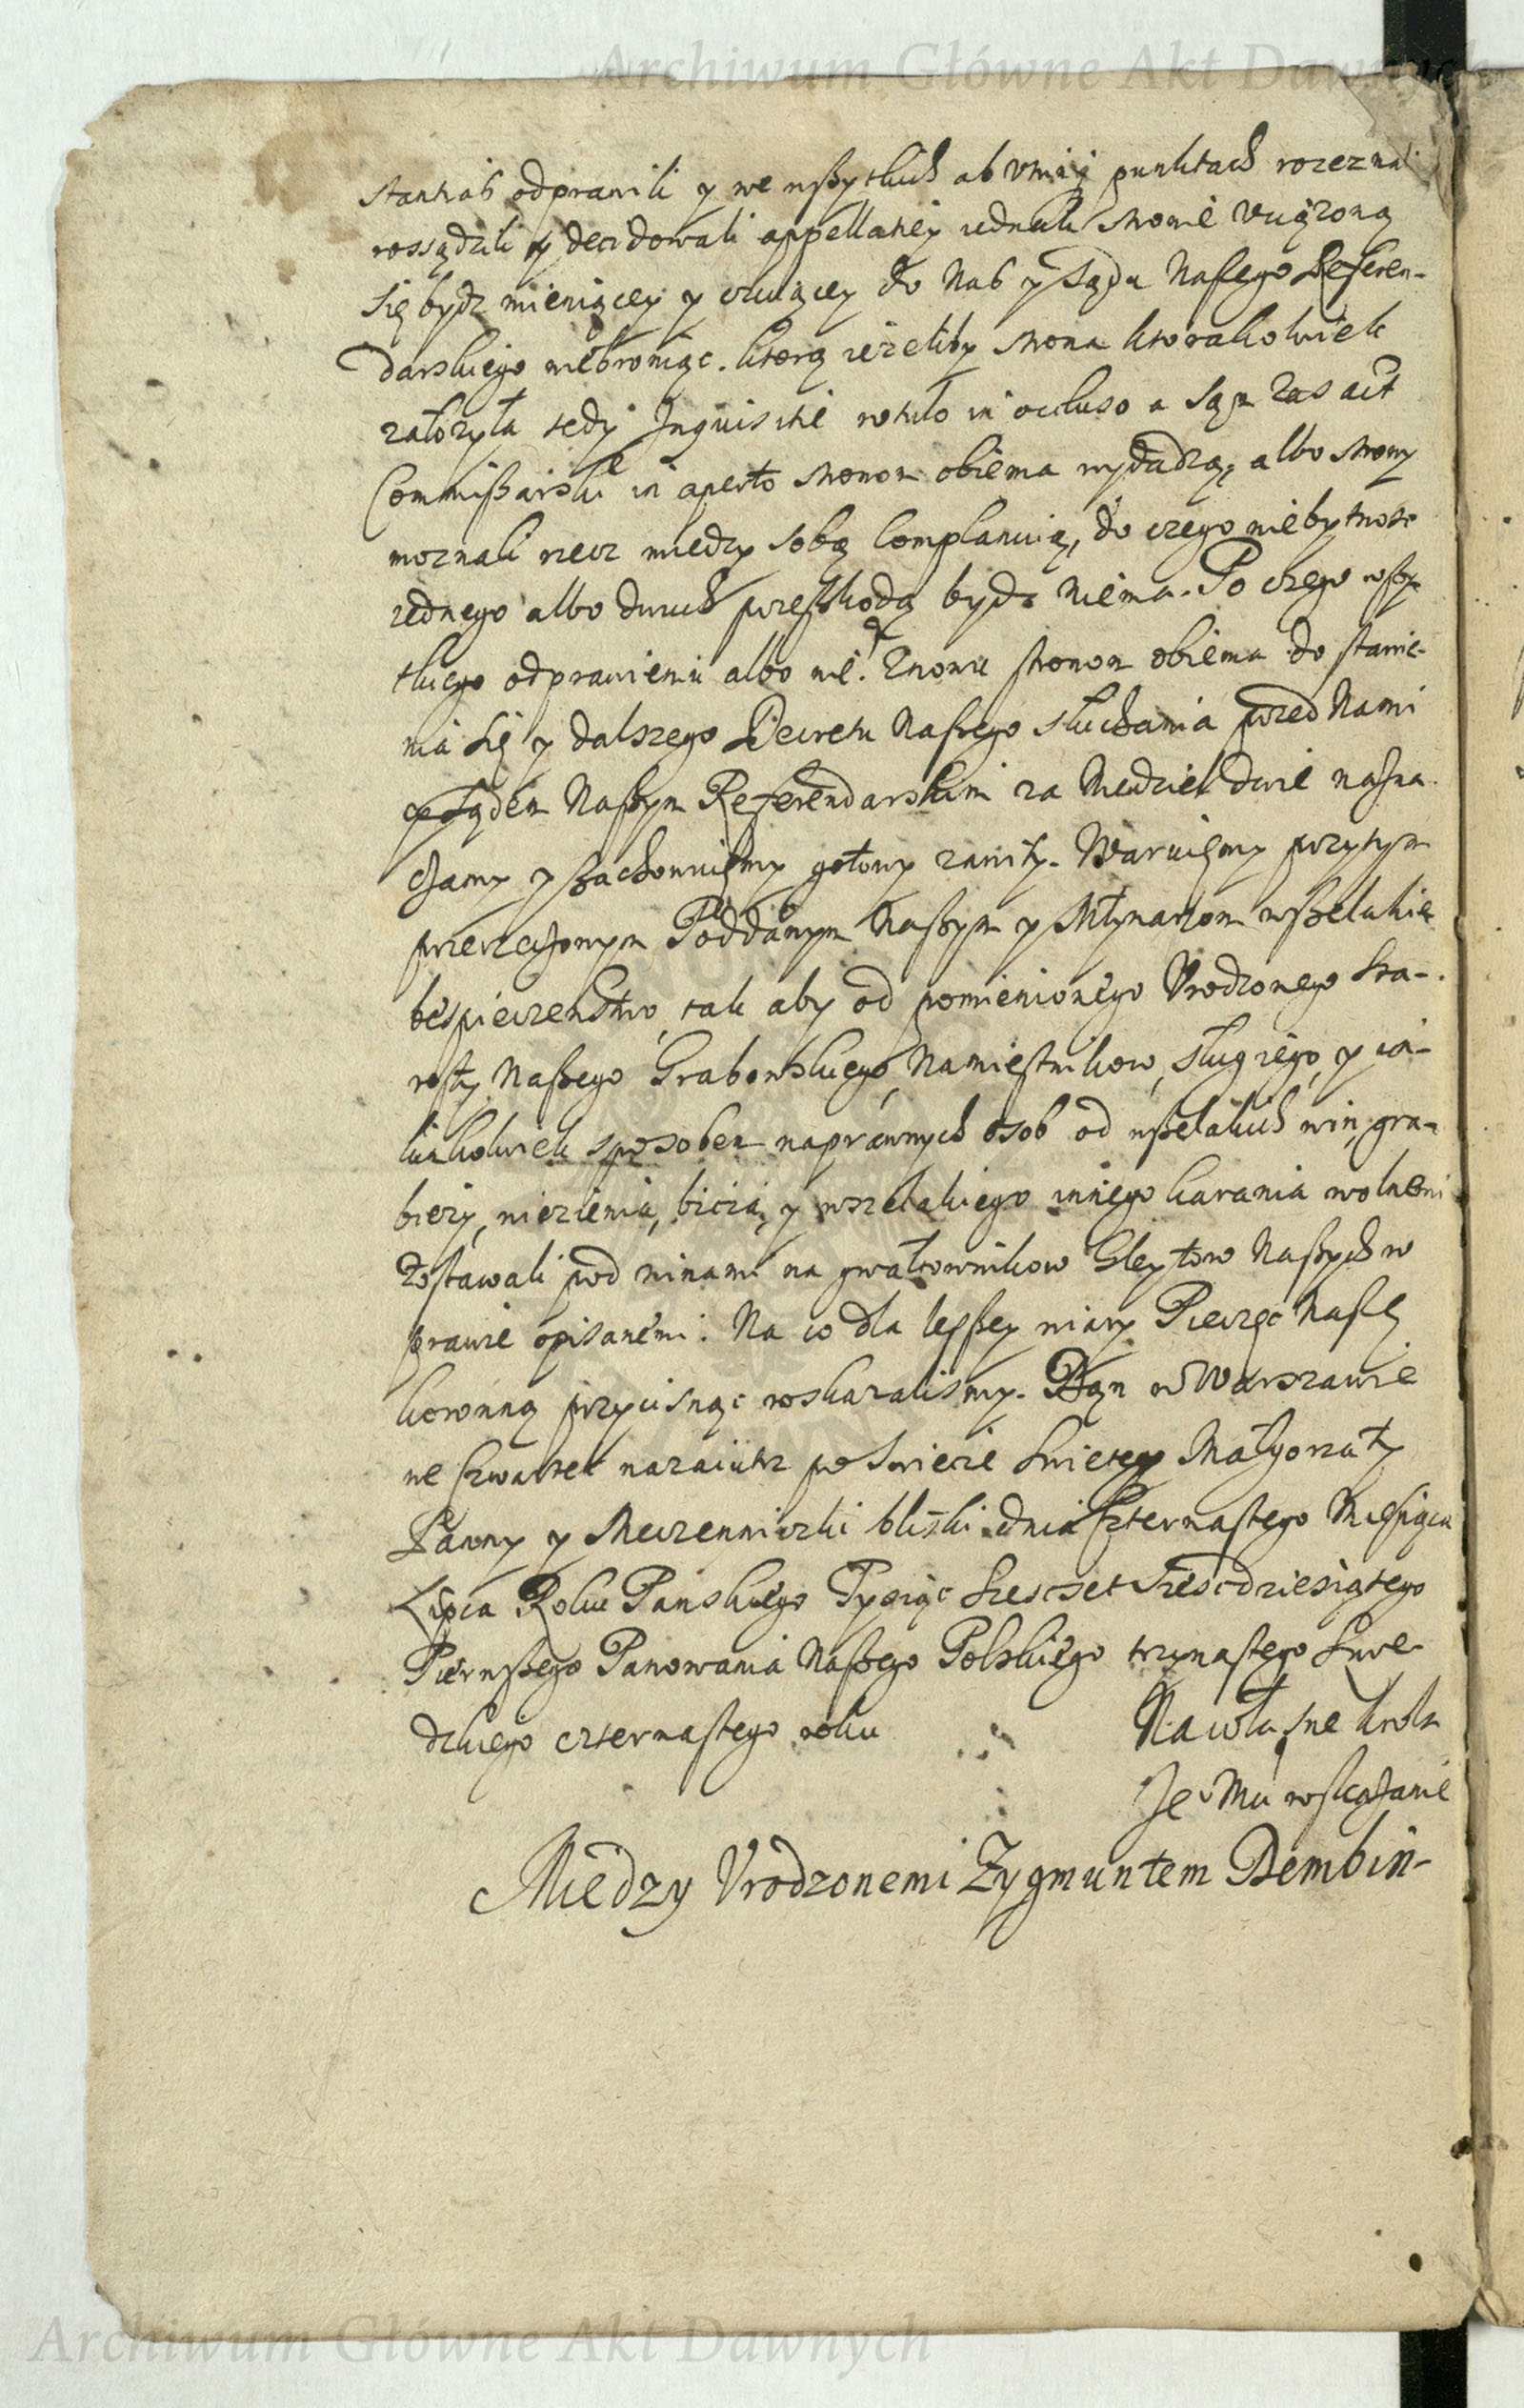 Archiwum Główne Akt Dawnych
odprawili y we wszytkich ab vtrinq punktach rozeznali
rossądzili y decidowali appellatiey iednak stronie vciążoną
się bydz mieniącey y czuiącey do Nas y Sądu Naszego Referen-
darskiego niebroniąc. ktorą ieżeliby strona ktorakolwiek
założyła tedy Inquisitie rotulo in occluso a sąm zas act
Commissarski in aperto stronom obiema wydadzą, albo strony
moznali rzecz miedzy sobą complanuią, do czego niebytnosc
iednego albo dwuch przeszkodą bydz niema. Po czego wszy-
tkiego odprawieniu albo nie. Znowu stronom obiema do stawie-
nia się y dalszego Decretu Naszego słuchania przed Nami
y Sądem Naszym Referendarskim za Niedziel dwie nazna-
czamy y zachowuięmy gotowy zawity. Waruięmy przytym
przerzeczonym Poddanym Naszym y Młynarzom wszelakie
bespieczenstwo, tak aby od pomienionego Vrodzonego Sta-
rosty Naszego Grabowskiego, Namiestnikow, sług iego, y ia-
kimkolwiek sposobem naprawnych osob od wszelakich win, gra-
bieży, więzienia, bicia, y wszelakiego innego karania wolnemi
zostawali pod winami na gwałtownikow Gleytow Naszych w
prawie opisanemi. Na co dla lepszey wiary Pieczęc Naszę
koronną przycisnąc roskazalismy. Dąn w Warszawie
we Czwartek nazaiutrz po swięcie Swiętey Małgorzaty
Panny y Meczenniczki bliski dnia Czternastego Miesiąca
Lipca Roku Panskiego Tysiąc Szescset Szescdziesiątego
Pierwszego Panowania Naszego Polskiego trzynastego Szwe-
dzkiego czternastego roku
Na własne krola
Je Mci roskazanie
Miedzy Vrodzonemi Zygmuntem Dembin-
Archiwum Główne Akt Dawnych